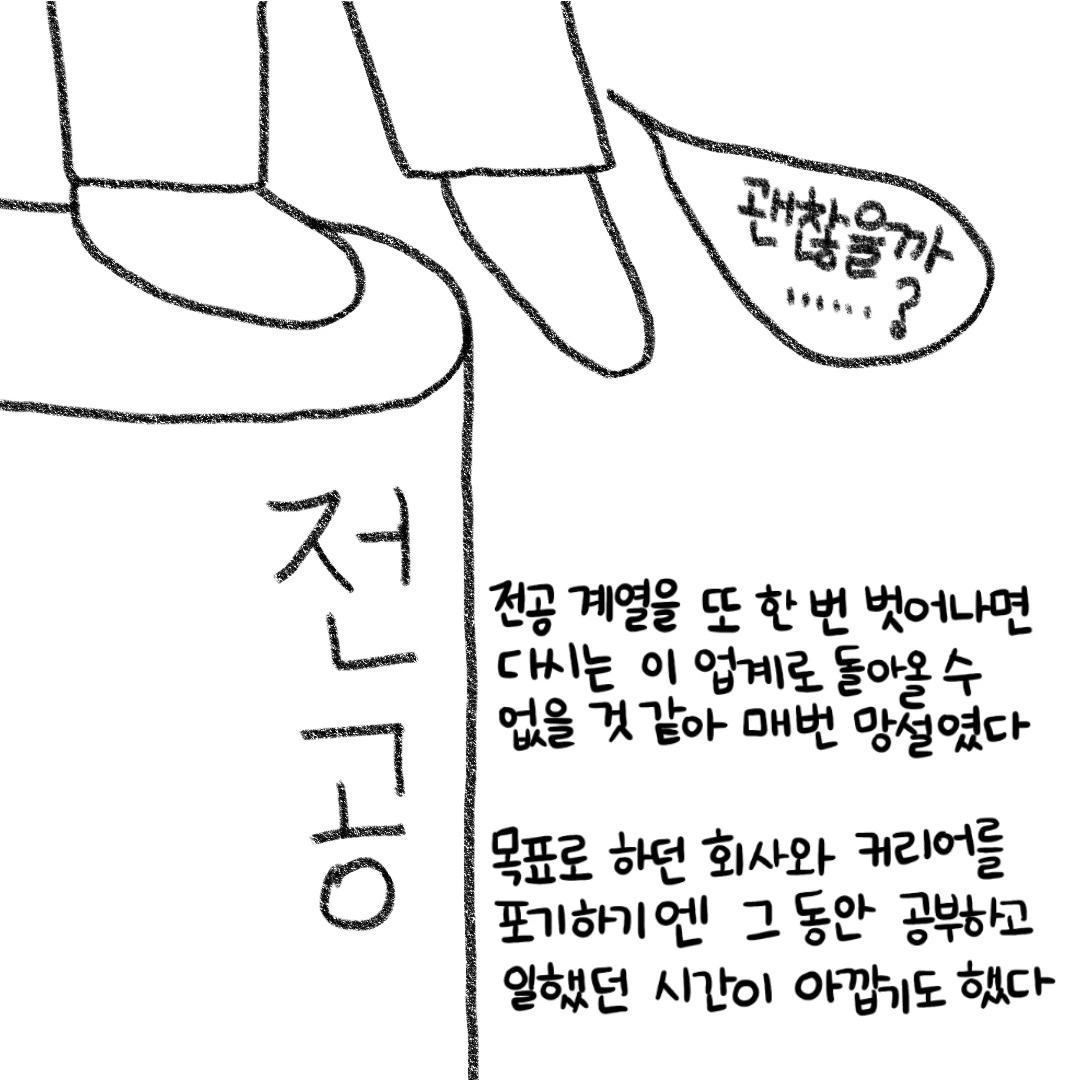 괜찮을까
……?
전공
전공 계열을 또 한 번 벗어나면
다시는 이 업계로 돌아올 수
없을 것 같아 매번 망설였다
목표로 하던 회사와 커리어를
포기하기엔 그 동안 공부하고
일했던 시간이 아깝기도 했다